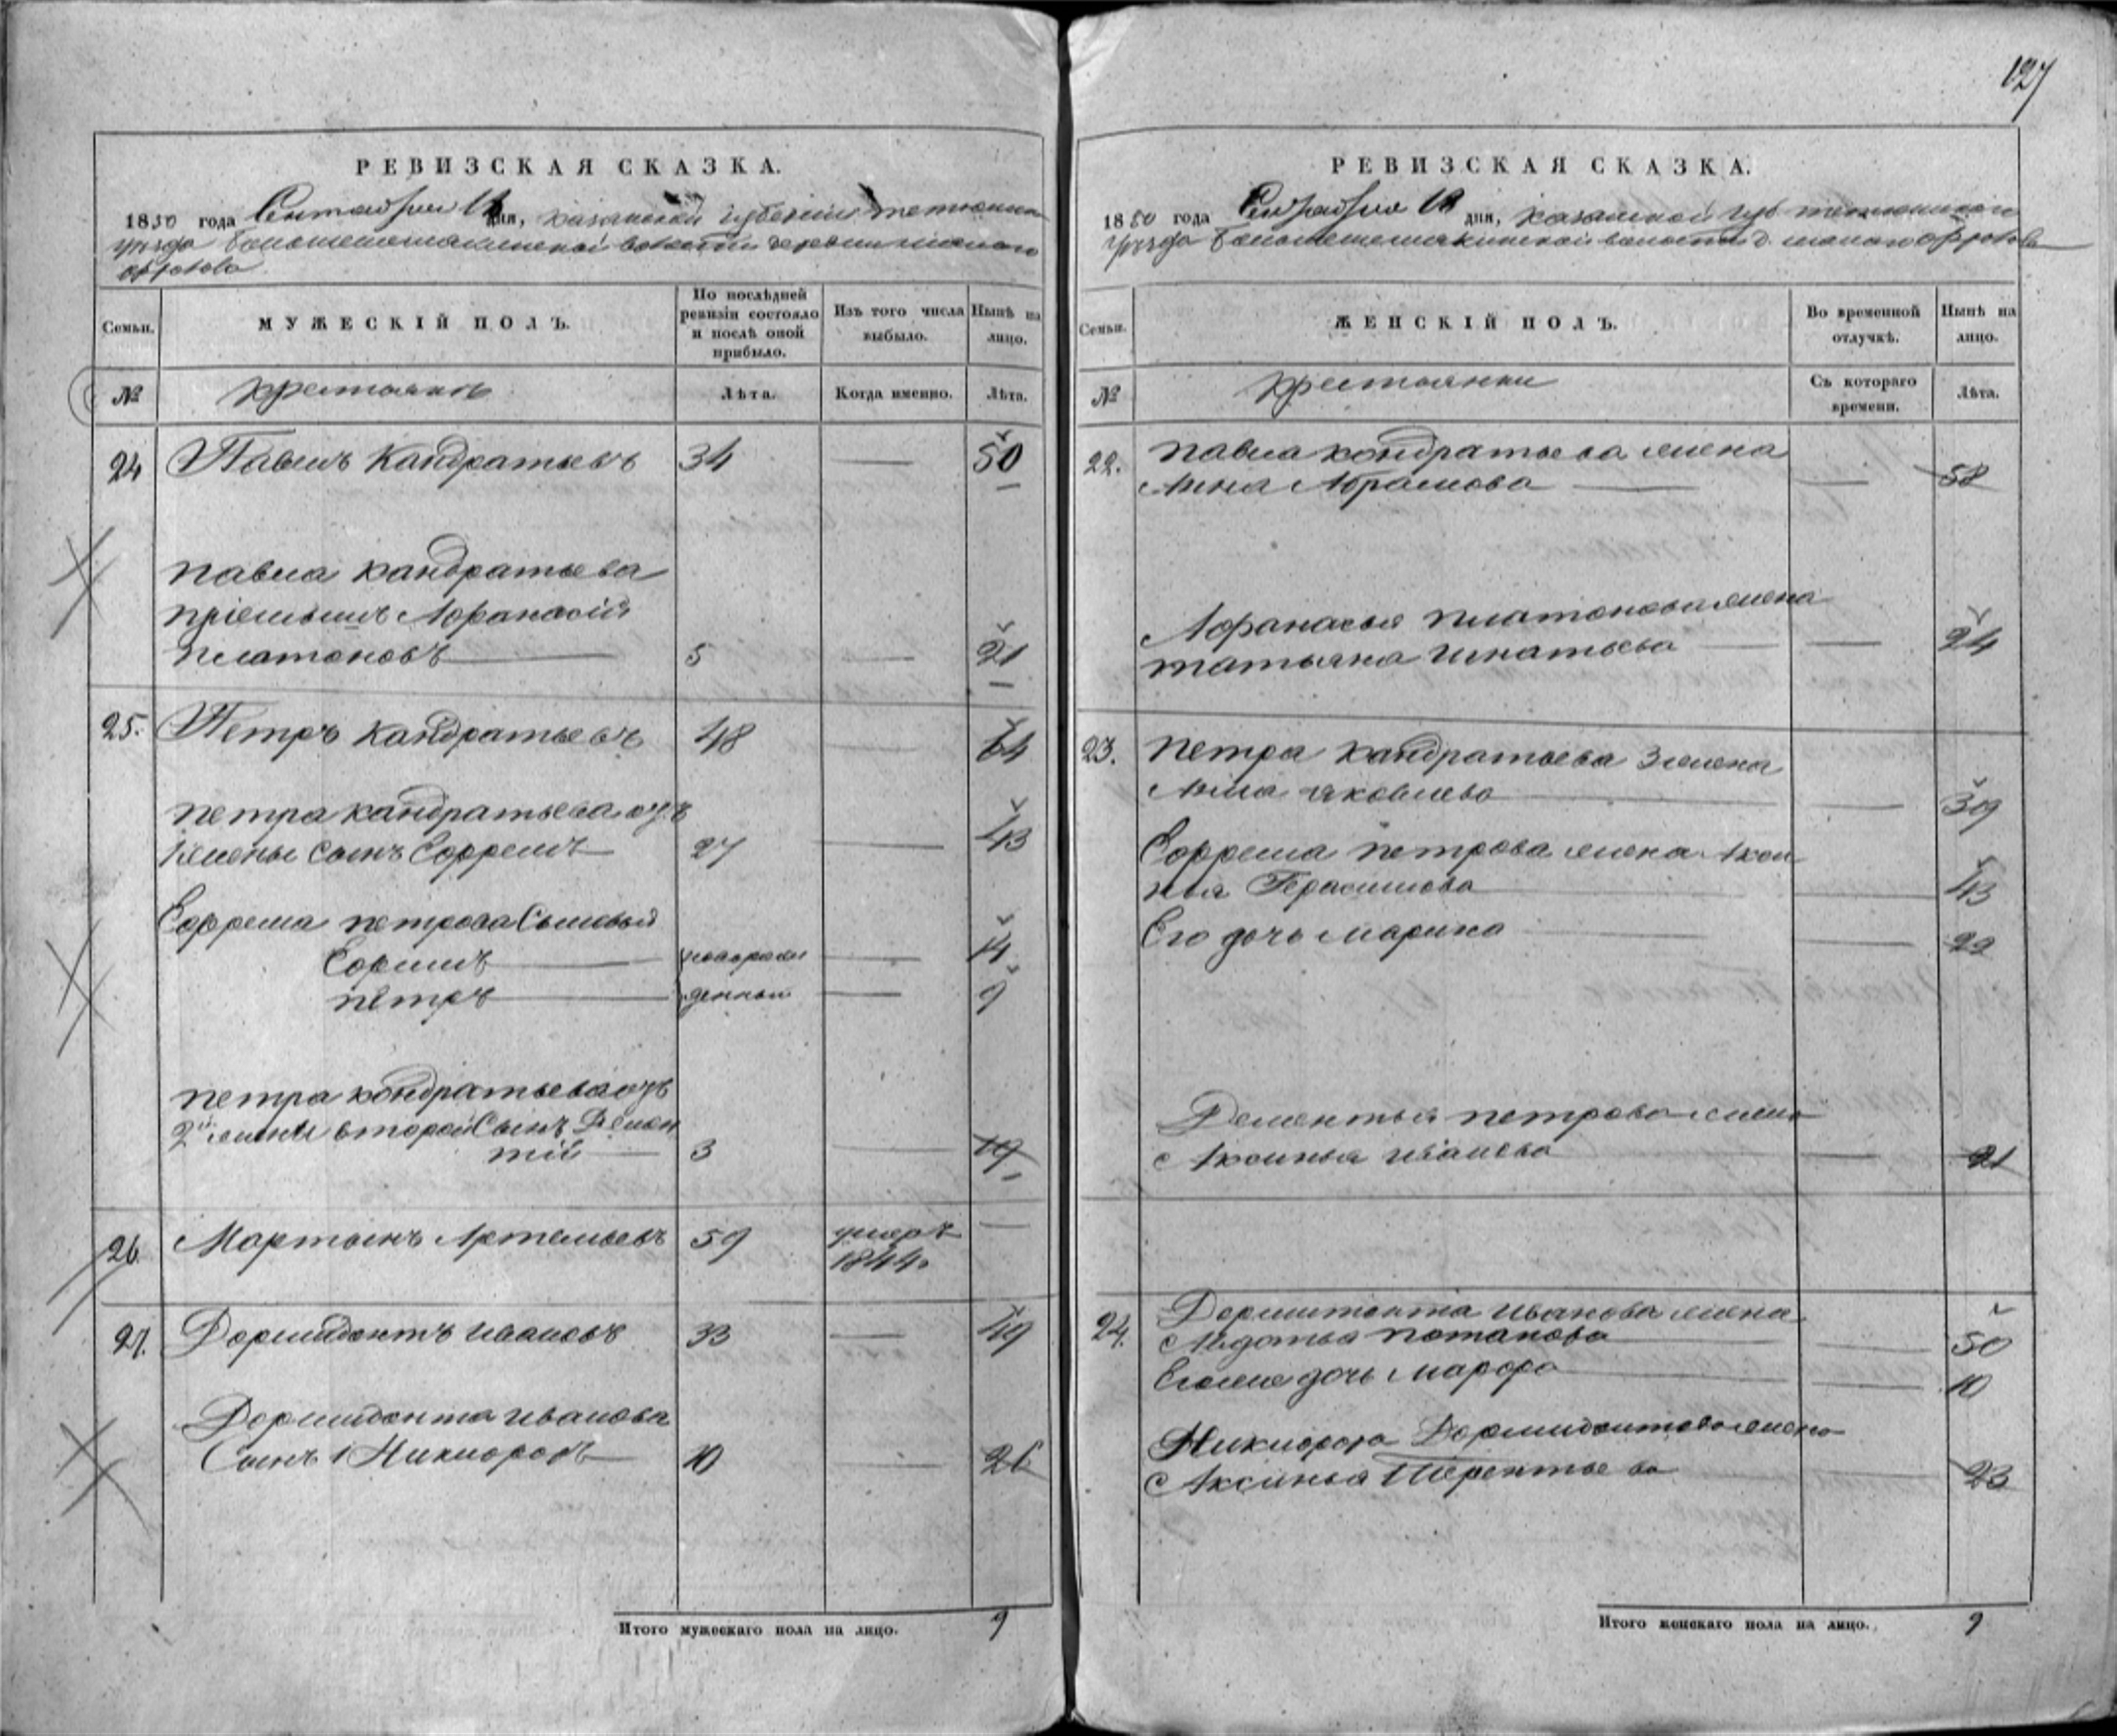 127
РЕВИЗСКАЯ СКАЗКА.
1850 года Сентября дня, Казанской губернии тетюшскаго
уезда волости деревни малаго
Семьи.
МУЖЕСКІЙ ПОЛЪ.
По послѣдней ревизіи состояло и послѣ оной прибыло.
Изъ того числа выбыло.
Нынѣ на лицо.
№
крестьянъ
Лѣта.
Когда именно.
Лѣта.
24 Павелъ Кандратьевъ 34 — 50
павла кандратьева
пріемышъ Афанасій
платоновъ 5 — 21
25. Петръ Кандратьевъ 48 — 64
петра кандратьева отъ
1 жены сынъ Ефремъ 27 — 43
Ефрема петрова Сыновья
Ефимъ новорож — 14
петръ денныи — 9
петра кондратьева отъ
2й жены второй Сынъ Демен
тій 3 — 19
26. Мартынъ Артемьевъ 59 умеръ —
1844.
27. Дормидонтъ ивановъ 33 — 49
Дормидонта иванова
Сынъ 1 Никифоръ 10 — 26
Итого мужескаго пола на лицо. 9
РЕВИЗСКАЯ СКАЗКА.
1850 года Сентября дня, казанской губ тетюшскаго
уезда волости д. малаго
Семьи.
ЖЕНСКІЙ ПОЛЪ.
Во временной отлучкѣ.
Нынѣ на лицо.
№
крестьянки
Съ котораго времени.
Лѣта.
22. павла кондратьева жена
Анна Абрамова — — 58
Афанасья платонова жена
татьяна игнатьева — — 24
23. петра кандратьева 3 жена
Анна яковлева — 39
Ефрема петрова жена Акси
нья Герасимова — 43
Его дочь Марина — 22
Дементья петрова жена
Аксинья иванова — 21
24. Дормитонта иванова жена
Авдотья потапова — 50
Ево же дочь марфа — 10
Никифора Дормидонтова жена
Аксинья Терентьева 23
Итого женскаго пола на лицо. 9